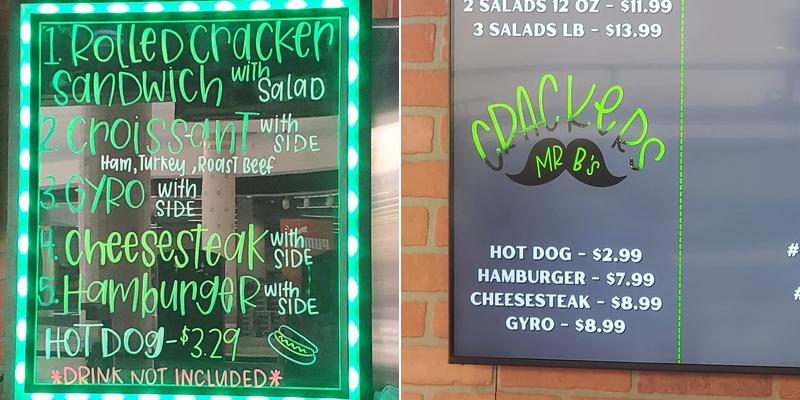 1. Rolled cracker
Sandwich with Salad
2. Croissant with SIDE
Ham, Turkey, Roast Beef
3. GYRO with SIDE
4. Cheesesteak with SIDE
5. Hamburger with SIDE
HOT DOG - $3.29
*DRINK NOT INCLUDED*
2 SALADS 12 OZ - $11.99
3 SALADS LB - $13.99
CRACKERS
MR B's
HOT DOG - $2.99
HAMBURGER - $7.99
CHEESESTEAK - $8.99
GYRO - $8.99
#
#